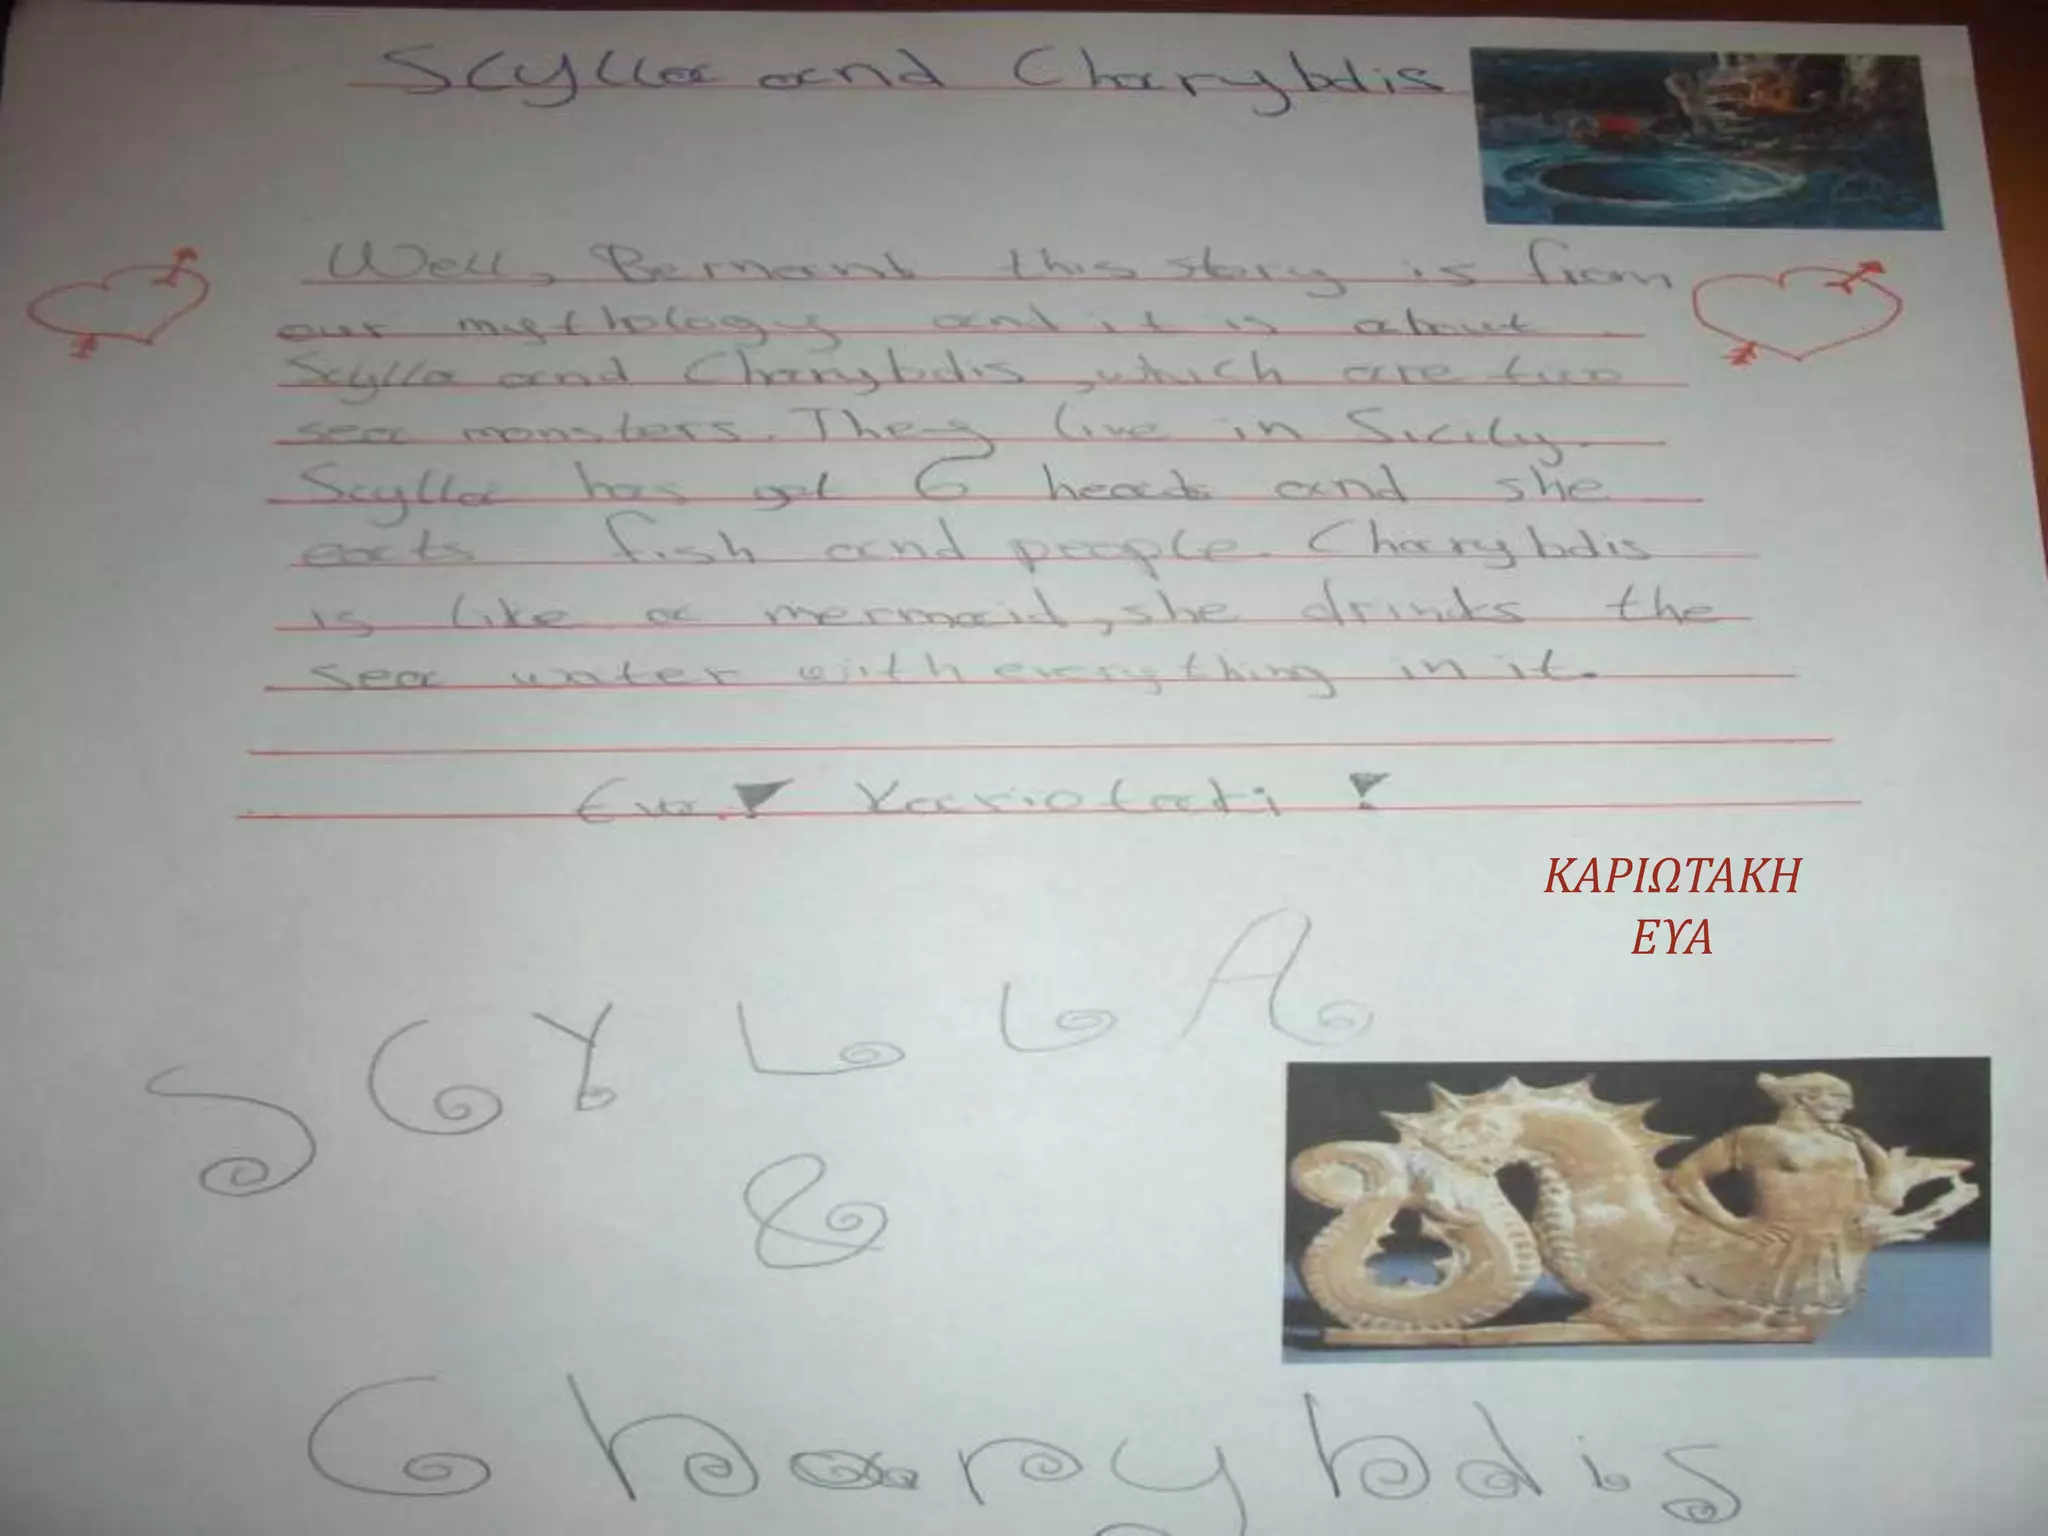 Scylla and Charybdis
Well, Bernant this story is from
our mythology and it is about
Scylla and Charybdis, which are two
sea monsters. They live in Sicily.
Scylla has got 6 heads and she
eats fish and people. Charybdis
is like a mermaid, she drinks the
sea water with everything in it.
Eva! Kariotaki!
ΚΑΡΙΩΤΑΚΗ
ΕΥΑ
SCYLLA
&
Charybdis